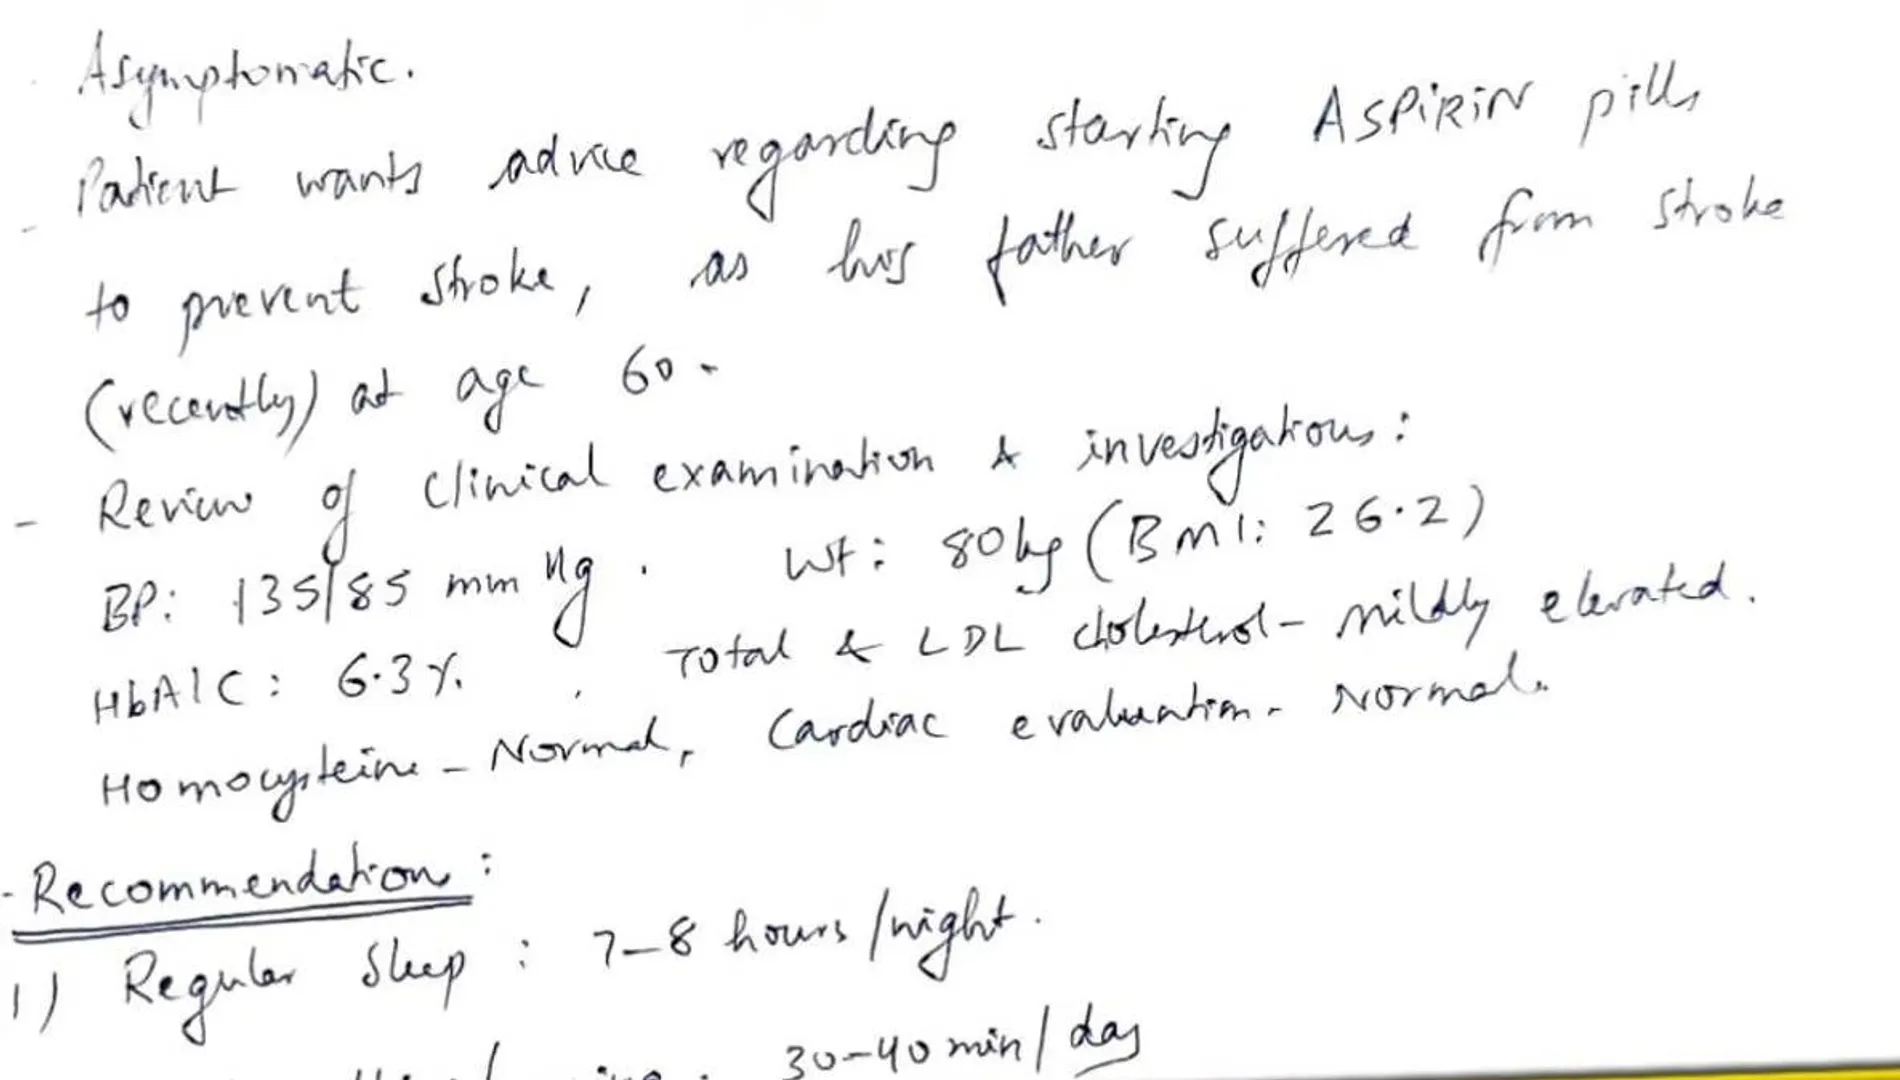 Asymptomatic.
- Patient wants advice regarding starting ASPIRIN pills
to prevent stroke, as his father suffered from stroke
(recently) at age 60.
- Review of clinical examination & investigations:
BP: 135/85 mm Hg. Wt: 80kg (BMI: 26.2)
HbA1C: 6.3%. Total & LDL cholesterol- mildly elevated.
Homocysteine - Normal, Cardiac evaluation- Normal.
- Recommendation:
1) Regular Sleep: 7-8 hours/night.
30-40 min/day